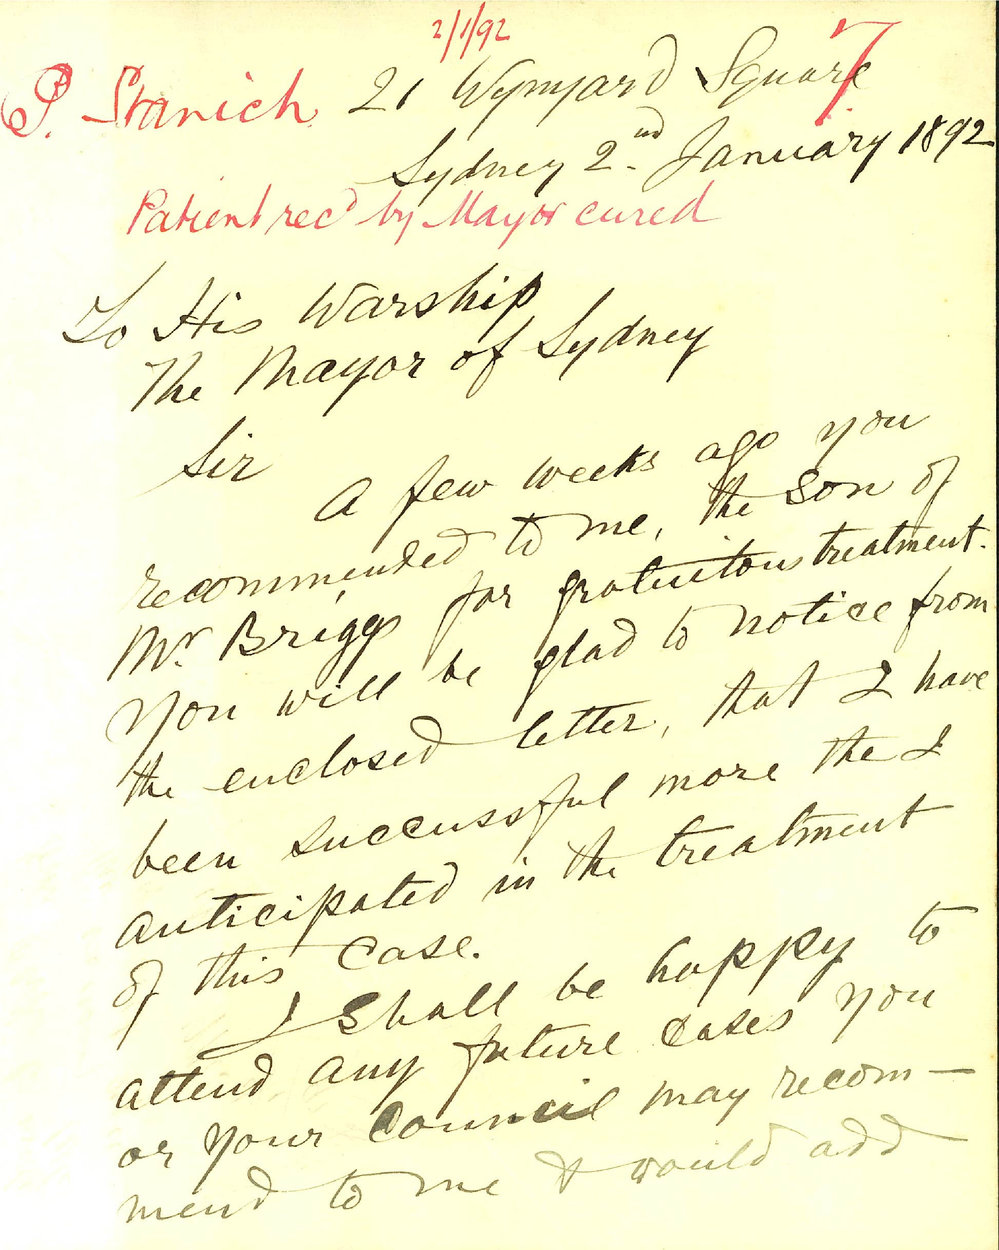 2/1/92
7
P. Stanich 21 Wynyard Square
Sydney 2nd. January 1892
Patient recd by Mayor cured
To His Warship
The Mayor of Sydney
Sir
A few weeks ago you
recommended to me, the son of
Mr. Briggs for gratuitous treatment.
You will be glad to notice from
the enclosed letter, that I have
been successful more the I
anticipated in the treatment
of this case.
I shall be happy to
attend any future cases you
or your Council may recom-
mend to me & would add